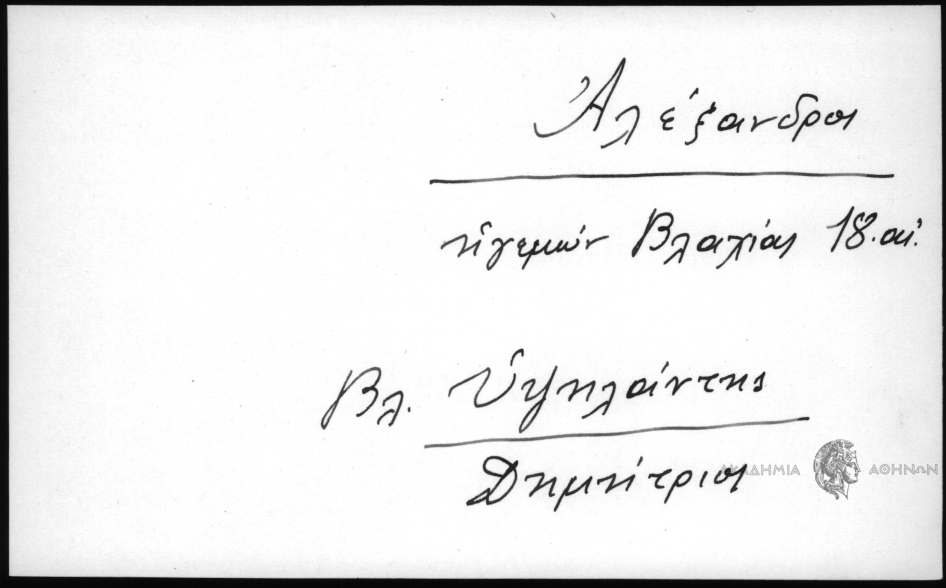 Ἀλέξανδρος
ἡγεμών Βλαχίας 18. αἰ.
Βλ. Ὑψηλάντης
Δημήτριος
ΑΚΑΔΗΜΙΑ ΑΘΗΝΩΝ